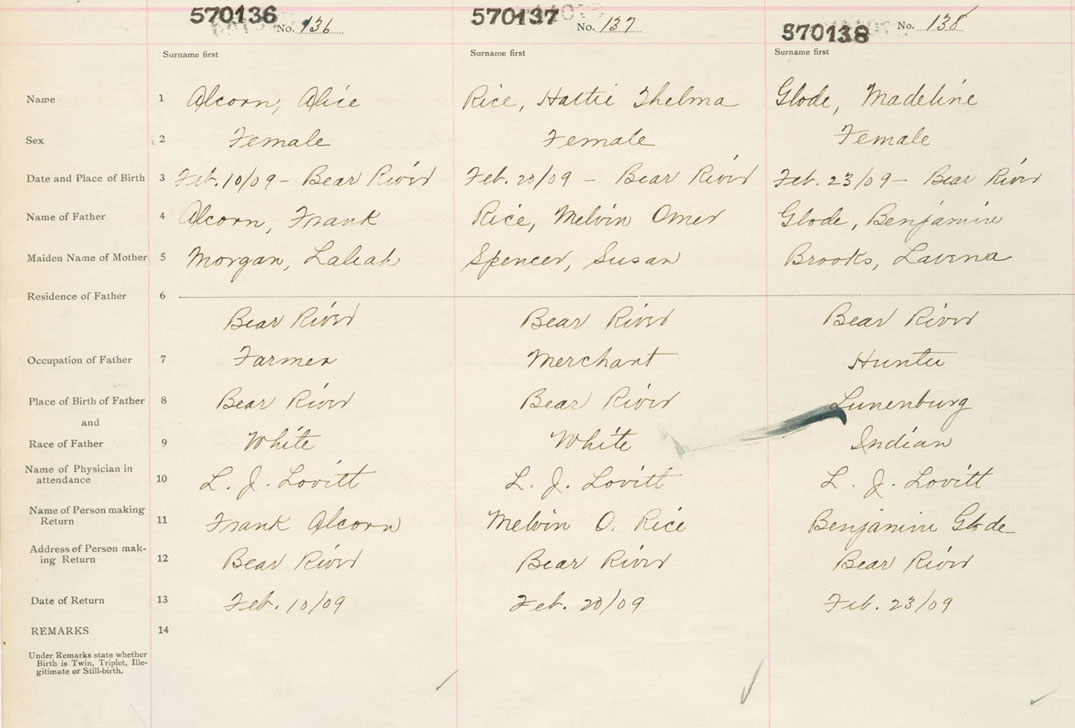 570136 No. 136 570137 No. 137 570138 No. 138
Surname first Surname first Surname first
Name 1 Alcorn, Alice Rice, Hattie Thelma Glode, Madeline
Sex 2 Female Female Female
Date and Place of Birth 3 Feb. 10/09 - Bear River Feb. 20/09 - Bear River Feb. 23/09 - Bear River
Name of Father 4 Alcorn, Frank Rice, Melvin Omer Glode, Benjamin
Maiden Name of Mother 5 Morgan, Laleah Spencer, Susan Brooks, Lavina
Residence of Father 6
Bear River Bear River Bear River
Occupation of Father 7 Farmer Merchant Hunter
Place of Birth of Father 8 Bear River Bear River Lunenburg
and
Race of Father 9 White White Indian
Name of Physician in
attendance 10 L. J. Lovitt L. J. Lovitt L. J. Lovitt
Name of Person making
Return 11 Frank Alcorn Melvin O. Rice Benjamin Glode
Address of Person mak-
ing Return 12 Bear River Bear River Bear River
Date of Return 13 Feb. 10/09 Feb. 20/09 Feb. 23/09
REMARKS 14
Under Remarks state whether
Birth is Twin, Triplet, Ille-
gitimate or Still-birth.